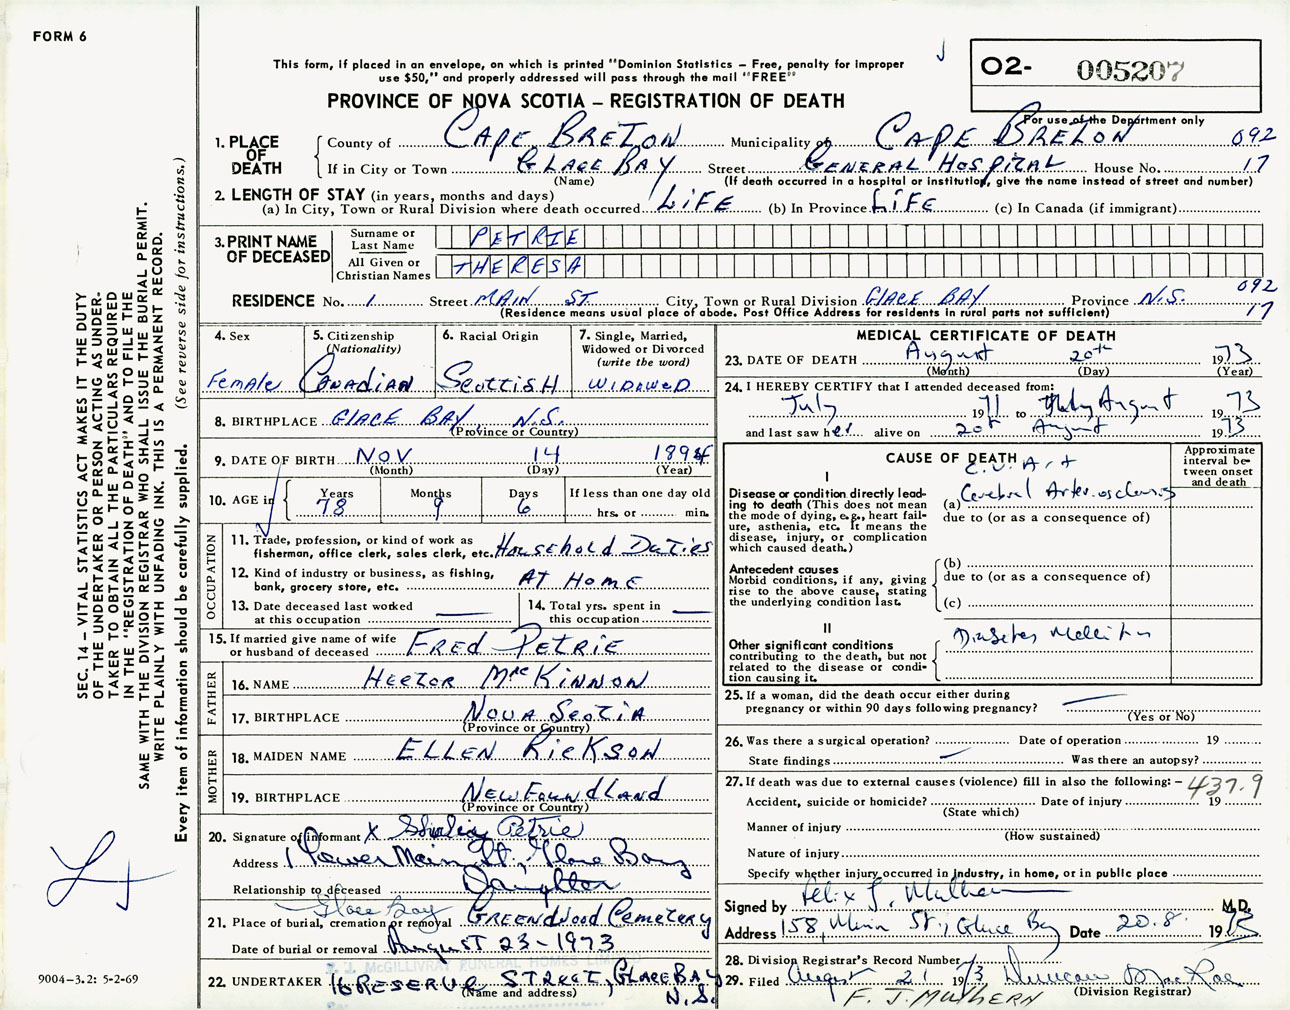 FORM 6
This form, if placed in an envelope, on which is printed "Dominion Statistics – Free, penalty for improper
use $50," and properly addressed will pass through the mail "FREE"
O2- 005207
For use of the Department only
PROVINCE OF NOVA SCOTIA – REGISTRATION OF DEATH
1. PLACE OF DEATH County of CAPE BRETON Municipality of CAPE BRETON 092
If in City or Town GLACE BAY Street GENERAL HOSPITAL House No. 17
(Name) (If death occurred in a hospital or institution, give the name instead of street and number)
2. LENGTH OF STAY (in years, months and days)
(a) In City, Town or Rural Division where death occurred LIFE (b) In Province LIFE (c) In Canada (if immigrant)
3. PRINT NAME OF DECEASED
Surname or Last Name PETRIE
All Given or Christian Names THERESA
RESIDENCE No. 1 Street MAIN ST. City, Town or Rural Division GLACE BAY Province N.S. 092
(Residence means usual place of abode. Post Office Address for residents in rural parts not sufficient) 17
4. Sex Female
5. Citizenship (Nationality) CANADIAN
6. Racial Origin SCOTTISH
7. Single, Married, Widowed or Divorced (write the word) WIDOWED
8. BIRTHPLACE GLACE BAY, N.S.
(Province or Country)
9. DATE OF BIRTH NOV 14 1894
(Month) (Day) (Year)
10. AGE in Years 78 Months 9 Days 6 If less than one day old
hrs. or min.
OCCUPATION
11. Trade, profession, or kind of work as
fisherman, office clerk, sales clerk, etc. HOUSEHOLD DUTIES
12. Kind of industry or business, as fishing,
bank, grocery store, etc. AT HOME
13. Date deceased last worked
at this occupation
14. Total yrs. spent in
this occupation
15. If married give name of wife
or husband of deceased FRED PETRIE
FATHER
16. NAME HECTOR MacKINNON
17. BIRTHPLACE NOVA SCOTIA
(Province or Country)
MOTHER
18. MAIDEN NAME ELLEN RICKSON
19. BIRTHPLACE NEWFOUNDLAND
(Province or Country)
20. Signature of informant x Shirley Petrie
Address 1 Power Main St., Glace Bay
Relationship to deceased Daughter
Glace Bay
21. Place of burial, cremation or removal GREENWOOD CEMETERY
Date of burial or removal AUGUST 23-1973
McGILLIVRAY FUNERAL HOMES LIMITED
22. UNDERTAKER 16 RESERVE STREET, GLACE BAY
(Name and address) N.S.
MEDICAL CERTIFICATE OF DEATH
23. DATE OF DEATH August 20th 1973
(Month) (Day) (Year)
24. I HEREBY CERTIFY that I attended deceased from:
July 1971 to August 1973
and last saw her alive on 20th August 1973
CAUSE OF DEATH
Approximate interval between onset and death
I
Disease or condition directly leading to death (This does not
mean the mode of dying, e.g., heart failure, asthenia, etc. It means the
disease, injury, or complication
which caused death.)
(a) Cerebral Arteriosclerosis
due to (or as a consequence of)
Antecedent causes
Morbid conditions, if any, giving
rise to the above cause, stating
the underlying condition last.
(b)
due to (or as a consequence of)
(c)
II
Other significant conditions
contributing to the death, but not
related to the disease or condition causing it.
Diabetes Mellitus
25. If a woman, did the death occur either during
pregnancy or within 90 days following pregnancy?
(Yes or No)
26. Was there a surgical operation? Date of operation 19
State findings Was there an autopsy?
27. If death was due to external causes (violence) fill in also the following: – 437.9
Accident, suicide or homicide? Date of injury 19
(State which)
Manner of injury
(How sustained)
Nature of injury
Specify whether injury occurred in industry, in home, or in public place
Signed by Felix J. Mulhern M.D.
Address 158, Main St., Glace Bay Date 20.8. 1973
28. Division Registrar's Record Number
29. Filed August 21 1973 Duncan MacRae
F. J. MULHERN (Division Registrar)
SEC. 14 – VITAL STATISTICS ACT MAKES IT THE DUTY
OF THE UNDERTAKER OR PERSON ACTING AS UNDER-
TAKER TO OBTAIN ALL THE PARTICULARS REQUIRED
IN THE "REGISTRATION OF DEATH" AND TO FILE THE
SAME WITH THE DIVISION REGISTRAR WHO SHALL ISSUE THE BURIAL PERMIT.
WRITE PLAINLY WITH UNFADING INK. THIS IS A PERMANENT RECORD.
Every item of information should be carefully supplied. (See reverse side for instructions.)
9004–3.2: 5-2-69